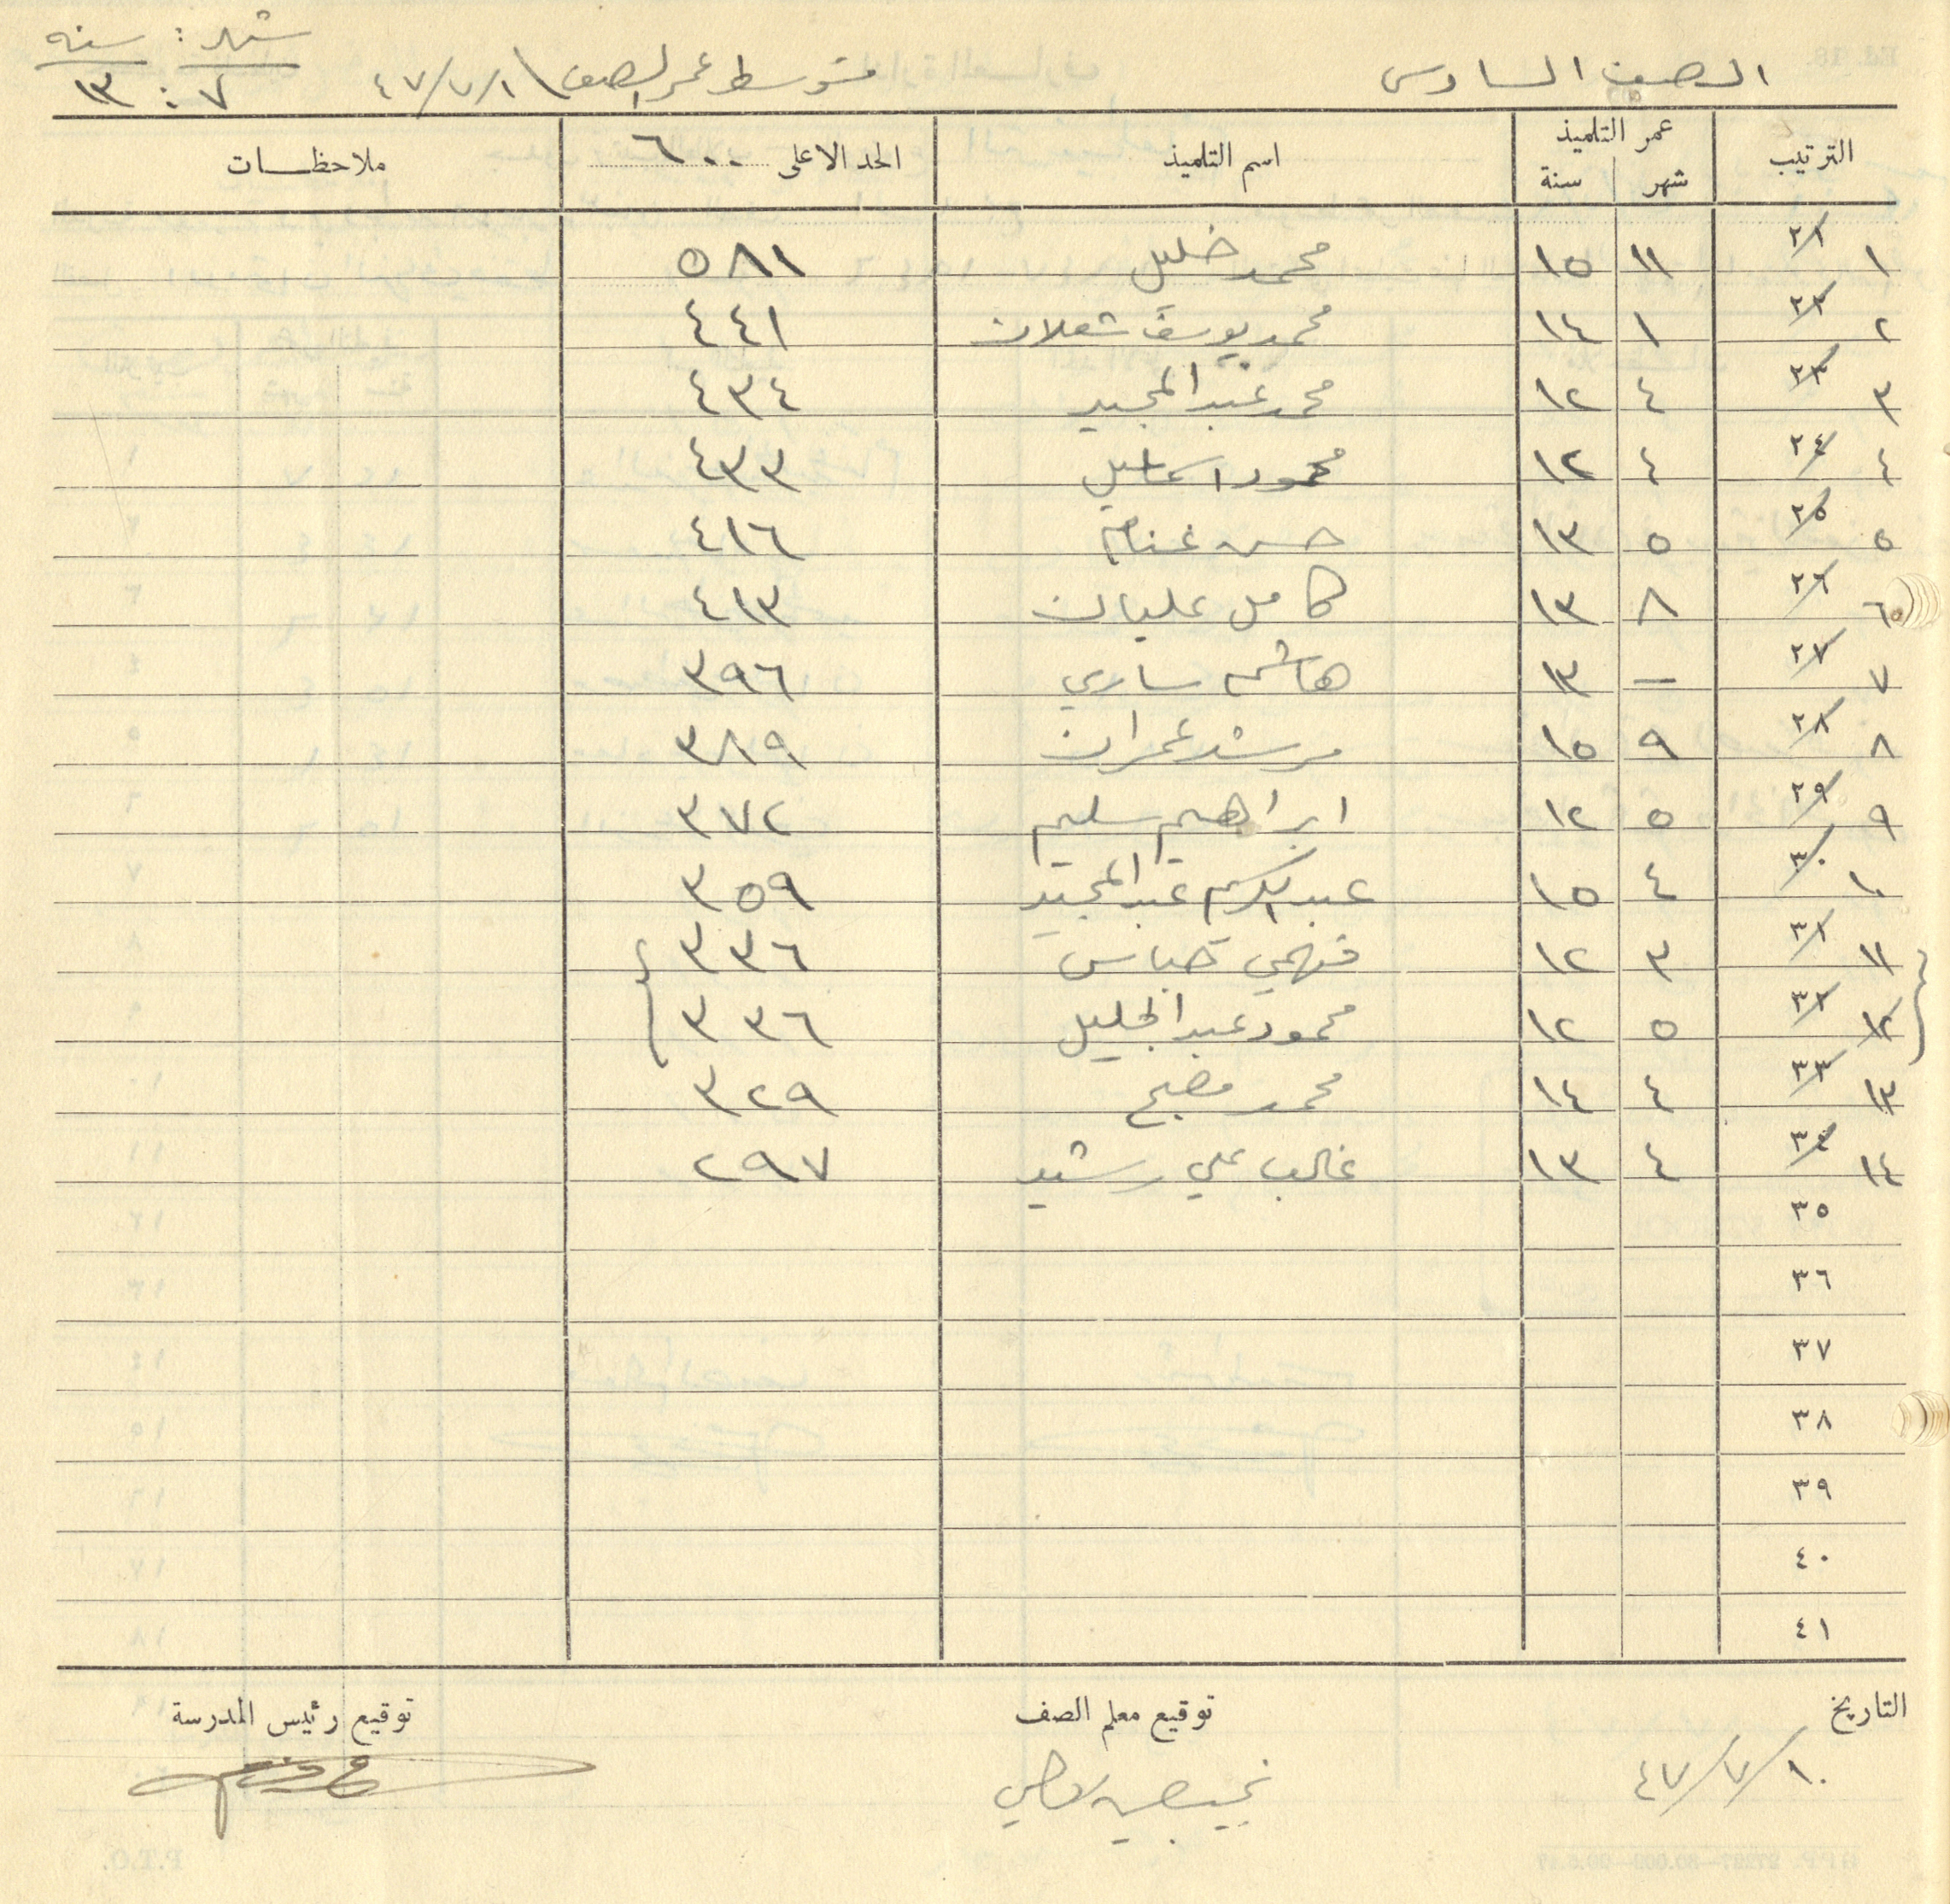 الصف السادس متوسط عمر الصف ١/٧/٤٧ شهر : سنه
٧ : ١٣
الترتيب عمر التلميذ اسم التلميذ الحد الاعلى ٦٠٠ ملاحظات
شهر سنة
١ ٢١ ١١ ١٥ محمد خليل ٥٨١
٢ ٢٢ ١ ١٤ محمد يوسف شعلان ٤٤١
٣ ٢٣ ٤ ١٢ محمد عبد المجيد ٤٣٤
٤ ٢٤ ٤ ١٢ محمود اسماعيل ٤٣٣
٥ ٢٥ ٥ ١٣ حسن غنام ٤١٦
٦ ٢٦ ٨ ١٣ كامل عليان ٤١٣
٧ ٢٧ – ١٣ هاشم ساري ٣٩٦
٨ ٢٨ ٩ ١٥ مرشد عمران ٣٨٩
٩ ٢٩ ٥ ١٢ ابراهيم سليم ٣٧٢
١٠ ٣٠ ٤ ١٥ عبد الكريم عبد المجيد ٣٥٩
١١ ٣١ ٣ ١٢ فهمي عباس ٣٣٦
١٢ ٣٢ ٥ ١٢ محمود عبد الجليل ٣٣٦
١٣ ٣٣ ٤ ١٤ محمد مصبح ٣٢٩
١٤ ٣٤ ٤ ١٣ غالب علي رشيد ٢٩٧
٣٥
٣٦
٣٧
٣٨
٣٩
٤٠
٤١
التاريخ توقيع معلم الصف توقيع رئيس المدرسة
١٠/٧/٤٧